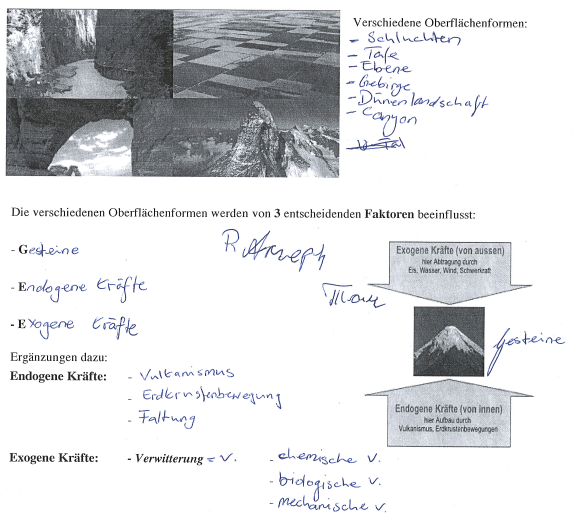 Verschiedene Oberflächenformen:
- Schluchten
- Täle
- Ebene
- Gebirge
- Dünenlandschaft
- Canyon
Die verschiedenen Oberflächenformen werden von 3 entscheidenden Faktoren beeinflusst:
- Gesteine
- Endogene Kräfte
- Exogene Kräfte
Exogene Kräfte (von aussen)
hier Abtragung durch
Eis, Wasser, Wind, Schwerkraft
Gesteine
Endogene Kräfte (von innen)
hier Aufbau durch
Vulkanismus, Erdkrustenbewegungen
Ergänzungen dazu:
Endogene Kräfte: - Vulkanismus
- Erdkrustenbewegung
- Faltung
Exogene Kräfte: - Verwitterung = V. - chemische V.
- biologische V.
- mechanische V.